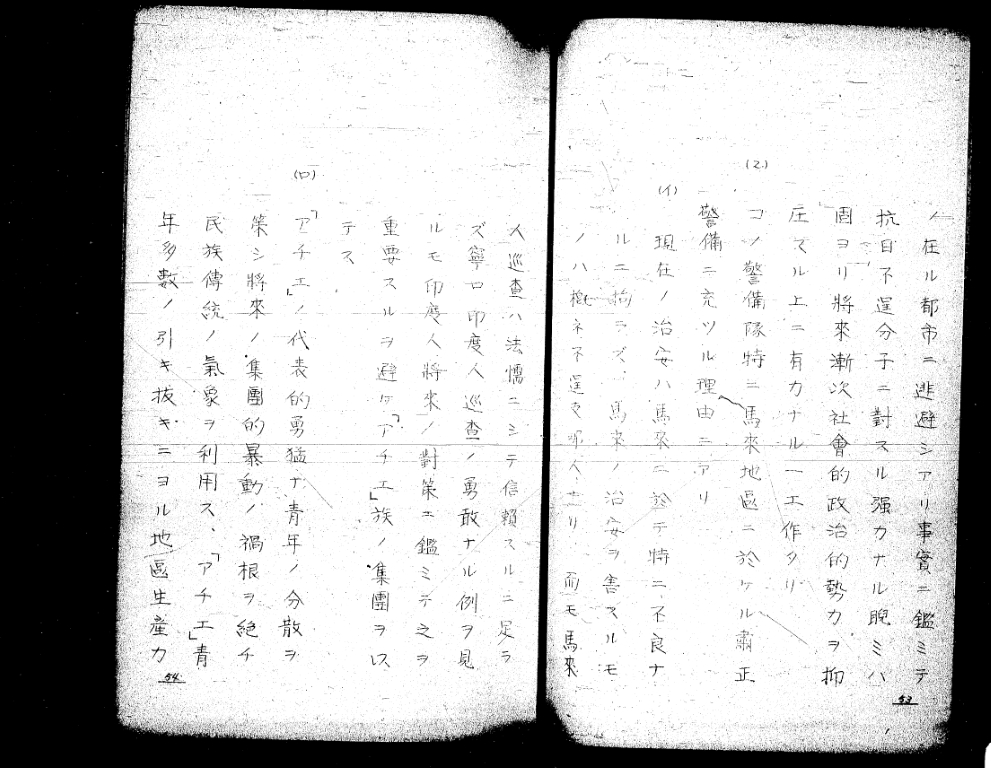 ノ在ル都市ニ逃避シアリ事實ニ鑑ミテ
抗日不逞分子ニ對スル强力ナル睨ミハ
固ヨリ將來漸次社會的政治的勢力ヲ抑
圧マル上ニ有力ナル一工作タリ
(2.)
コノ警備隊特ニ馬來地區ニ於ケル肅正
警備ニ充ツル理由ニアリ
(イ)
現在ノ治安ハ馬來ニ於テ特ニ不良ナ
ルニ拘ラズ、馬來ノ治安ヲ害スルモ
ノハ概ネ不逞支那人ナリ而モ馬來
53
人巡查ハ法懦ニシテ信賴スルニ足ラ
ズ寧ロ印度人巡查ノ勇敢ナル例ヲ見
ルモ印度人將來ノ對策ニ鑑ミテ之ヲ
重要スルヲ避ケ「アチエ」族ノ集團ヲ以
テス
(ロ)
「アチエ」ノ代表的勇猛ナ青年ノ分散ヲ
策シ將來ノ集團的暴動ノ禍根ヲ絕チ
民族傳統ノ氣象ヲ利用ス、「アチエ」青
年多數ノ引キ拔キニヨル地區生產力
54